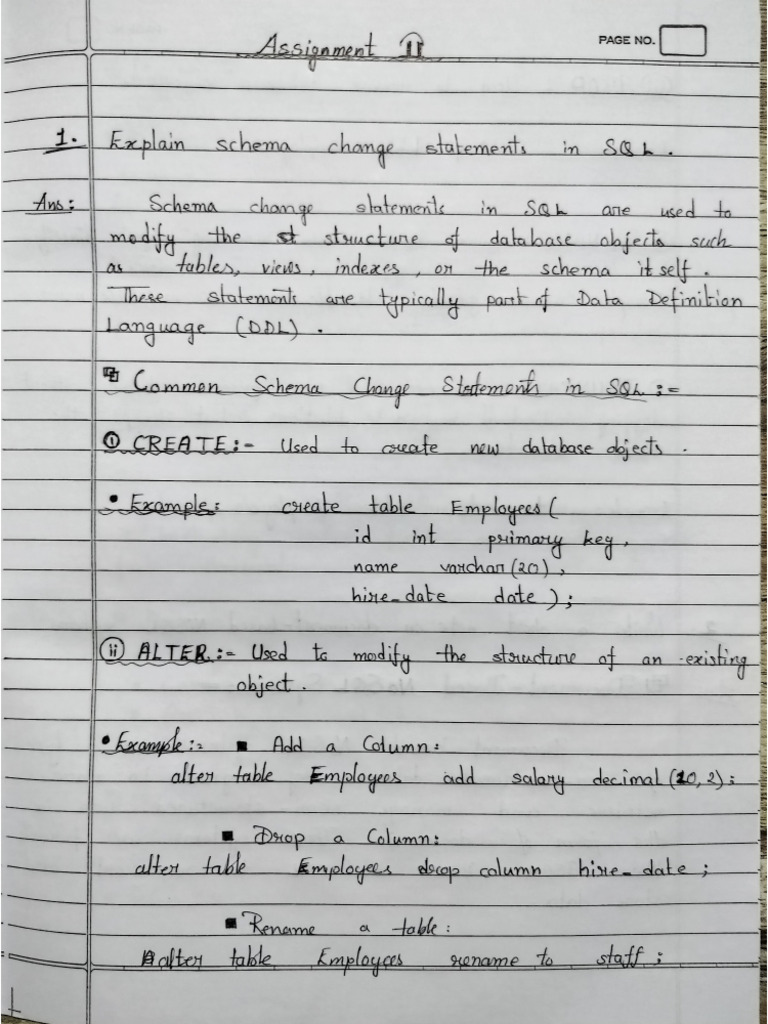 Assignment II
PAGE NO.
1. Explain schema change statements in SQL.
Ans: Schema change statements in SQL are used to
modify the structure of database objects such
as tables, views, indexes, or the schema itself.
These statements are typically part of Data Definition
Language (DDL).
Common Schema Change Statements in SQL :-
(i) CREATE:- Used to create new database objects.
• Example: create table Employees(
id int primary key,
name varchar(20),
hire_date date);
(ii) ALTER:- Used to modify the structure of an existing
object.
• Example:- ▪ Add a Column:
alter table Employees add salary decimal(10,2);
▪ Drop a Column:
alter table Employees drop column hire_date;
▪ Rename a table:
alter table Employees rename to staff;